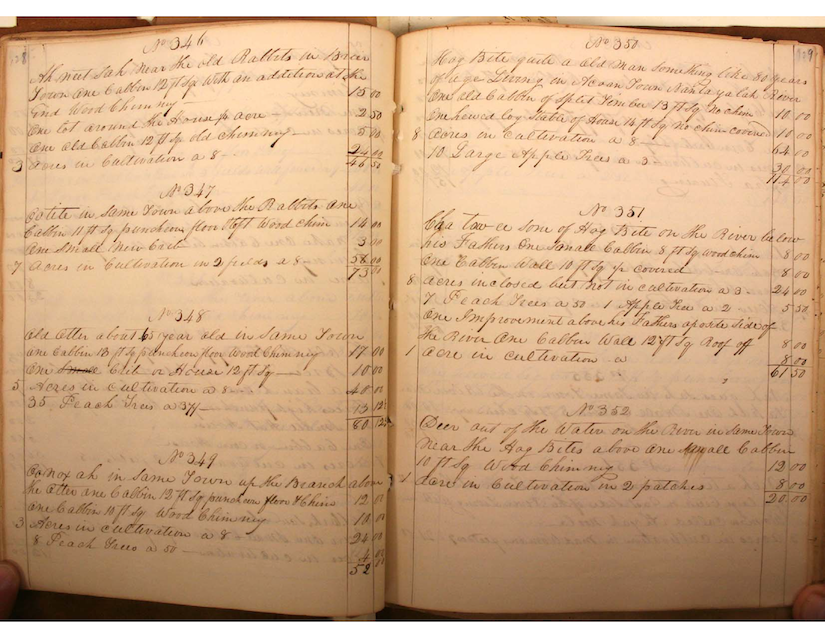 No 346
Ah neet Sah Near the old Rabbits in Brier
Town one Cabbin 12 ft Sq With an addition at the
End Wood Chimny 15 00
One lot around the House ½ acre 2 50
One old Cabbin 12 ft Sq old chimny 5 00
3 Acres in Cultivation a 8 24 00
46 50
No 347
in Same Town above the Rabbits one
Cabbin 11 ft Sq puncheon floor Wood Chim 14 00
One Small New Crib 3 00
7 Acres in Cultivation in 2 fields a 8 58 00
73 00
No 348
Old Otter about 65 year old in Same Town
one Cabbin 13 ft Sq puncheon floor Wood Chimney 17 00
One Crib or House 12 ft Sq 10 00
5 Acres in cultivation a 8 40 00
35 Peach Trees a 37½ 13 12½
80 12½
No 349
in Same Town up the Branch above
the Otter one Cabbin 12 ft Sq puncheon floor & Chim 12 00
one Cabbin 10 ft Sq Wood Chimney 10 00
3 Acres in cultivation a 8 24 00
8 Peach Trees a 50 4 00
52 00
No 350 329
Hog Bite quite a old man something like 80 years
of age Living in Acorn Town Nanta ya lah River
One old Cabbin of Split Timber 13 ft Sq No chim 10 00
One hewed log State of House 14 ft Sq No chim covered 10 00
8 Acres in cultivation a 8 64 00
10 Large Apple Trees a 3 30 00
114 00
No 351
Cha taw ee sone of Hog Bite on the River below
his Fathers One Small Cabbin 8 ft Sq wood chim 8 00
One Cabbin Wall 10 ft Sq ½ covered 8 00
8 acres inclosed but not in cultivation a 3 24 00
7 Peach Trees a 50 1 Apple Tree a 2 5 50
One Improvement above his Fathers aposite Side of
the River One Cabbin Wall 12 ft Sq Roof off 8 00
1 acre in cultivation a 8 00
61 50
No 352
Deer out of the Water on the River in Same Town
Near the Hog Bites above one Small Cabbin
10 ft Sq Wood Chimny 12 00
1 Acre in Cultivation in 2 patches 8 00
20 00